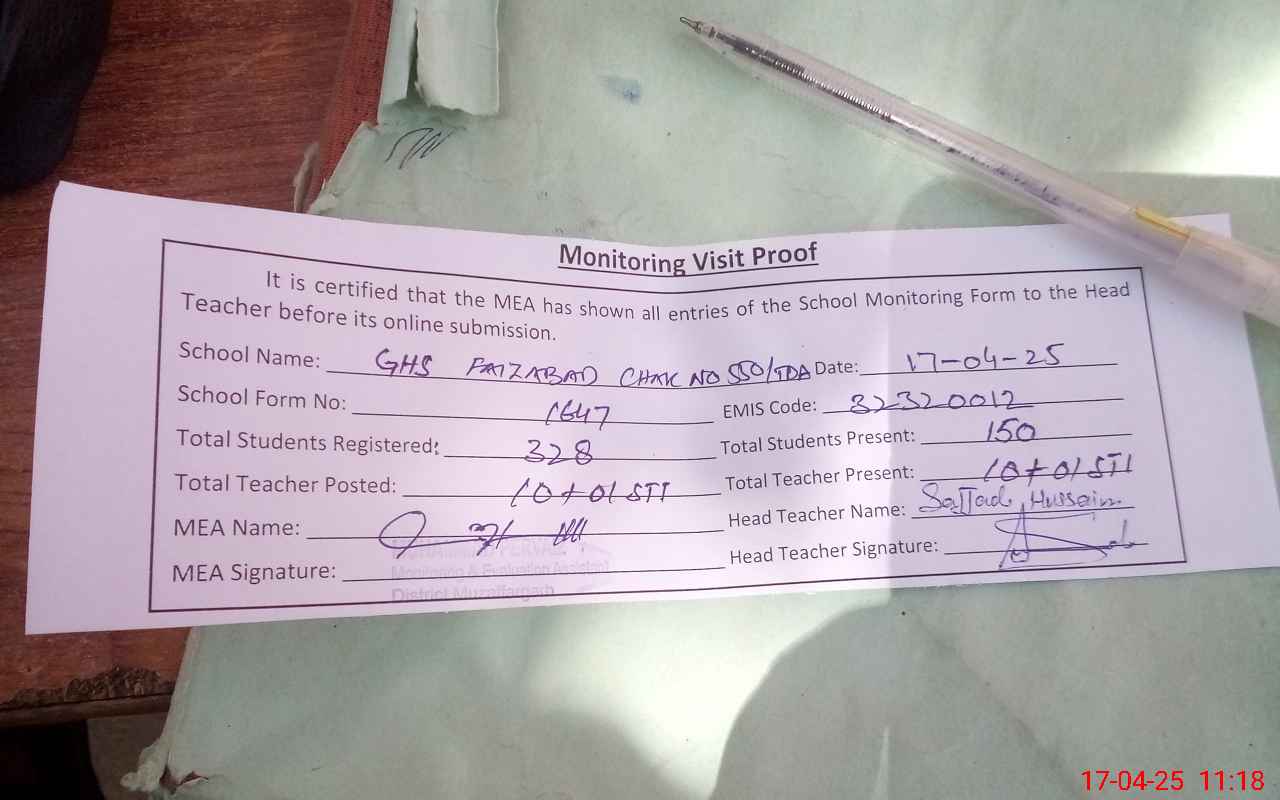 Monitoring Visit Proof
It is certified that the MEA has shown all entries of the School Monitoring Form to the Head
Teacher before its online submission.
School Name: GHS FAIZABAD CHAK NO 550/TDA Date: 17-04-25
School Form No: 1647 EMIS Code: 32320012
Total Students Registered: 328 Total Students Present: 150
Total Teacher Posted: 10+01 STI Total Teacher Present: 10+01 STI
MEA Name: Head Teacher Name: Sajjad Hussain
MEA Signature: Head Teacher Signature:
Monitoring & Evaluation Assistant
District Muzaffargarh
17-04-25 11:18